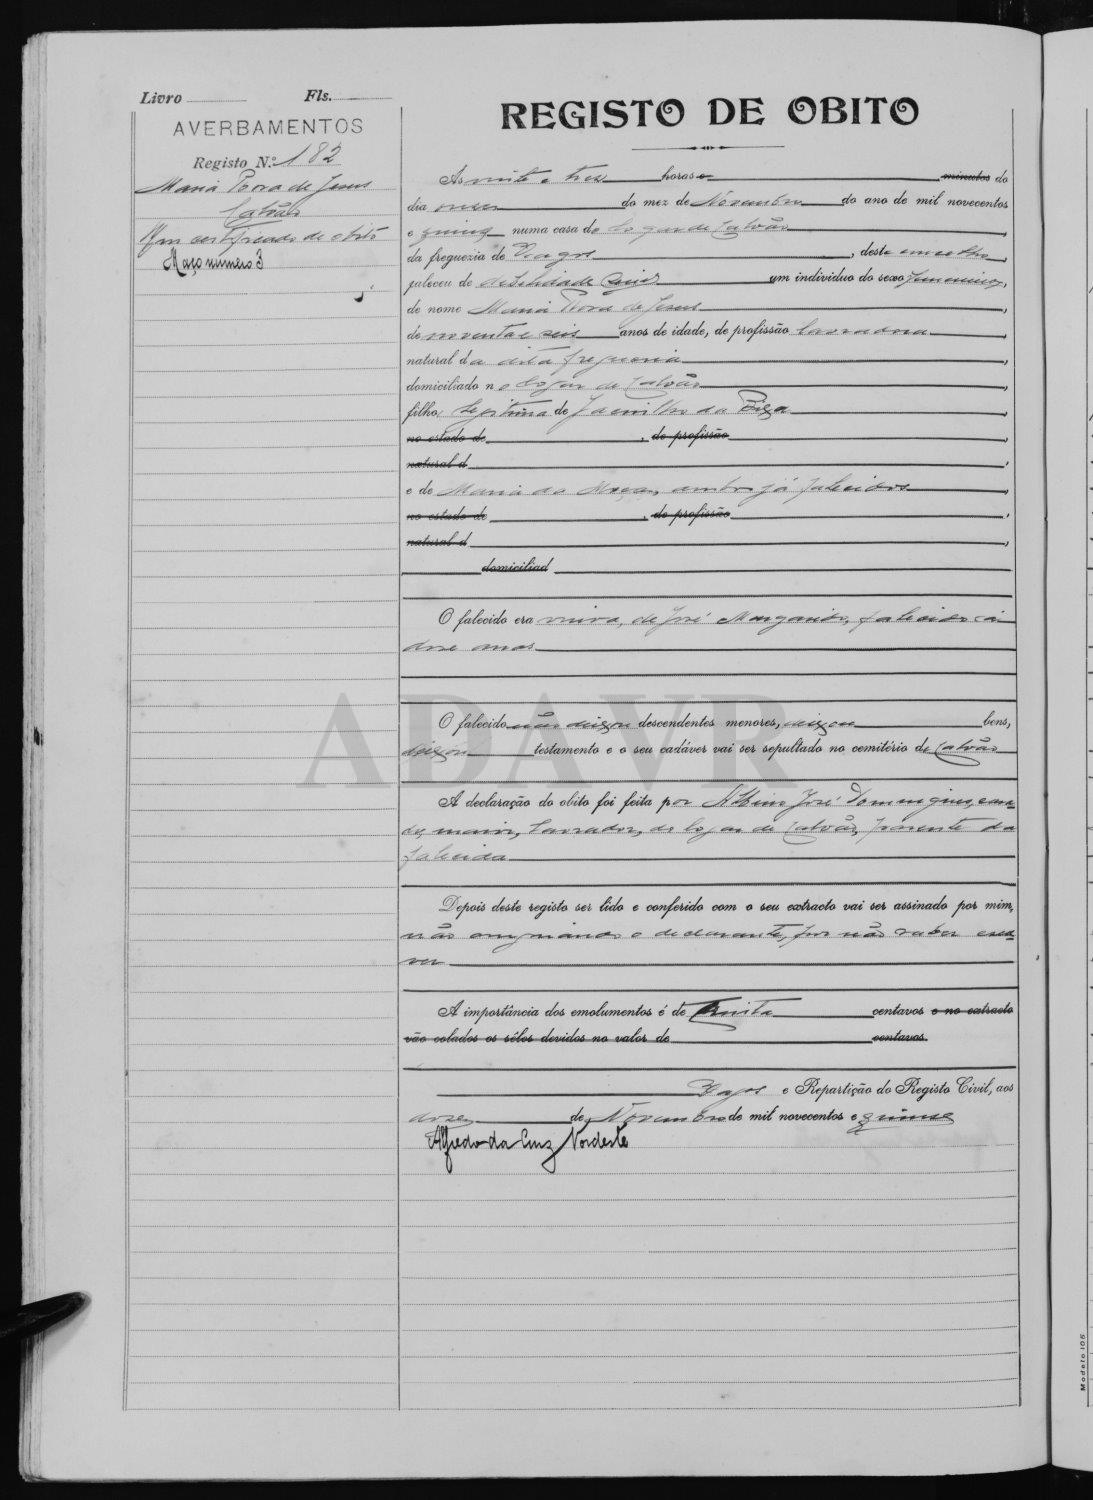 Livro Fls.
AVERBAMENTOS
Registo N.º 182
Maria Rosa de Jesus
Calvão
Um certificado de obito
Maço numero 3
REGISTO DE OBITO
Ás vinte e tres horas e minutos do
dia onze do mez de Novembro do ano de mil novecentos
e quinze numa casa do logar de Calvão,
da freguezia de Vagos, deste concelho,
faleceu de um individuo do sexo femenino,
de nome Maria Rosa de Jesus,
de noventa e seis anos de idade, de profissão lavradora,
natural da dita freguesia,
domiciliado no logar de Calvão,
filho, legitima de da,
no estado de, de profissão,
natural d,
e de Maria da, ambos já falecidos,
no estado de, de profissão,
natural d,
domiciliad
O falecido era viuva, de José, falecido á
doze anos
ADAVR
O falecido não deixou descendentes menores, deixou bens,
deixou testamento e o seu cadáver vai ser sepultado no cemitério de Calvão
A declaração do obito foi feita por Albino José Domingues, casa-
do, maior, lavrador, do logar de Calvão, parente da
falecida
Depois deste registo ser lido e conferido com o seu extracto vai ser assinado por mim,
não assignando o declarante, por não saber escre-
ver
A importância dos emolumentos é de trinta centavos e no extracto
vão colados os sêlos devidos no valor de centavos.
Vagos e Repartição do Registo Civil, aos
doze de Novembro de mil novecentos e quinze
Alfredo da Cruz Nordeste
Modelo 105